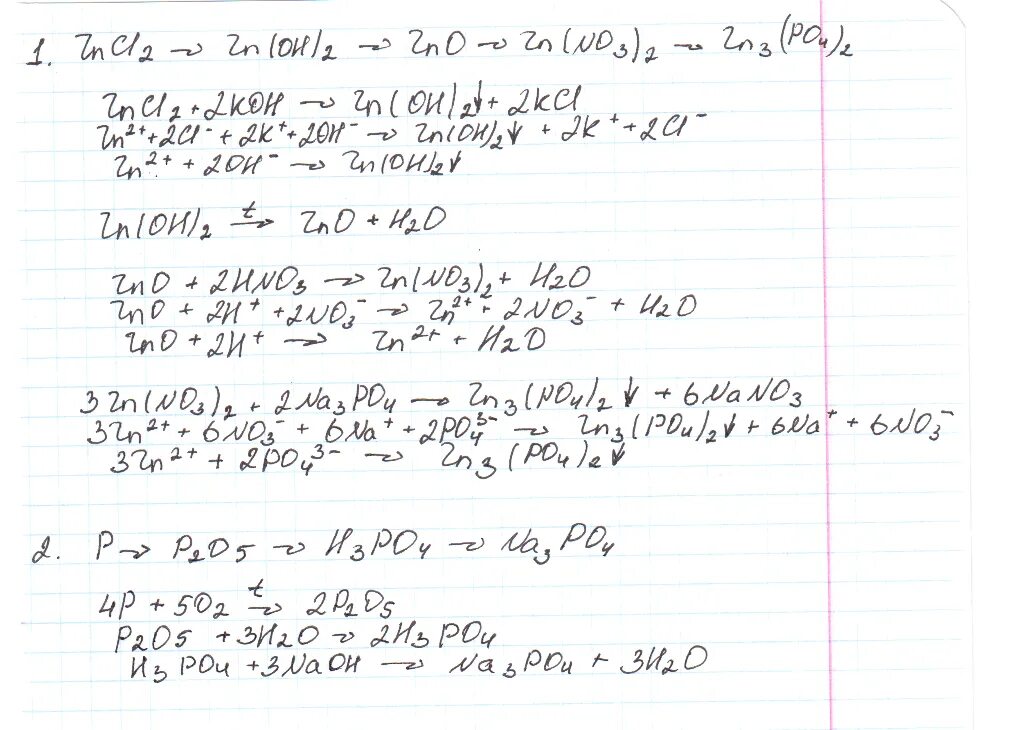 1. ZnCl₂ → Zn(OH)₂ → ZnO → Zn(NO₃)₂ → Zn₃(PO₄)₂
ZnCl₂ + 2KOH → Zn(OH)₂↓ + 2KCl
Zn²⁺ + 2Cl⁻ + 2K⁺ + 2OH⁻ → Zn(OH)₂↓ + 2K⁺ + 2Cl⁻
Zn²⁺ + 2OH⁻ → Zn(OH)₂↓
Zn(OH)₂ t→ ZnO + H₂O
ZnO + 2HNO₃ → Zn(NO₃)₂ + H₂O
ZnO + 2H⁺ + 2NO₃⁻ → Zn²⁺ + 2NO₃⁻ + H₂O
ZnO + 2H⁺ → Zn²⁺ + H₂O
3Zn(NO₃)₂ + 2Na₃PO₄ → Zn₃(PO₄)₂↓ + 6NaNO₃
3Zn²⁺ + 6NO₃⁻ + 6Na⁺ + 2PO₄³⁻ → Zn₃(PO₄)₂↓ + 6Na⁺ + 6NO₃⁻
3Zn²⁺ + 2PO₄³⁻ → Zn₃(PO₄)₂↓
2. P → P₂O₅ → H₃PO₄ → Na₃PO₄
4P + 5O₂ t→ 2P₂O₅
P₂O₅ + 3H₂O → 2H₃PO₄
H₃PO₄ + 3NaOH → Na₃PO₄ + 3H₂O